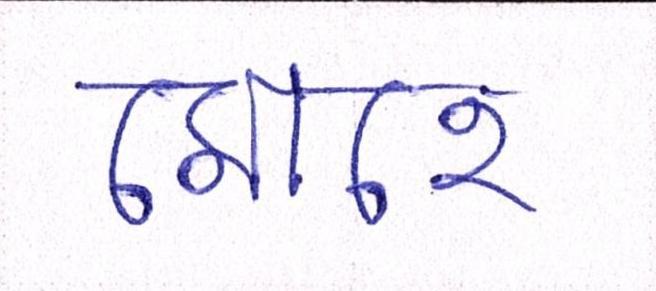 মোহে